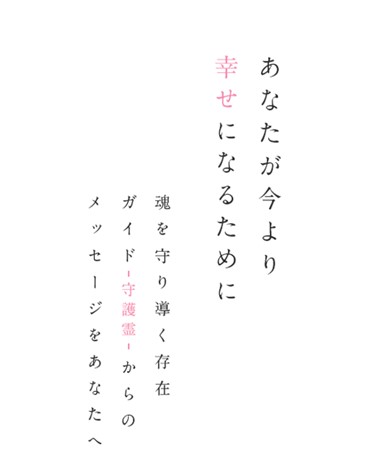 あなたが今より
幸せになるために
魂を守り導く存在
ガイド-守護霊-からの
メッセージをあなたへ